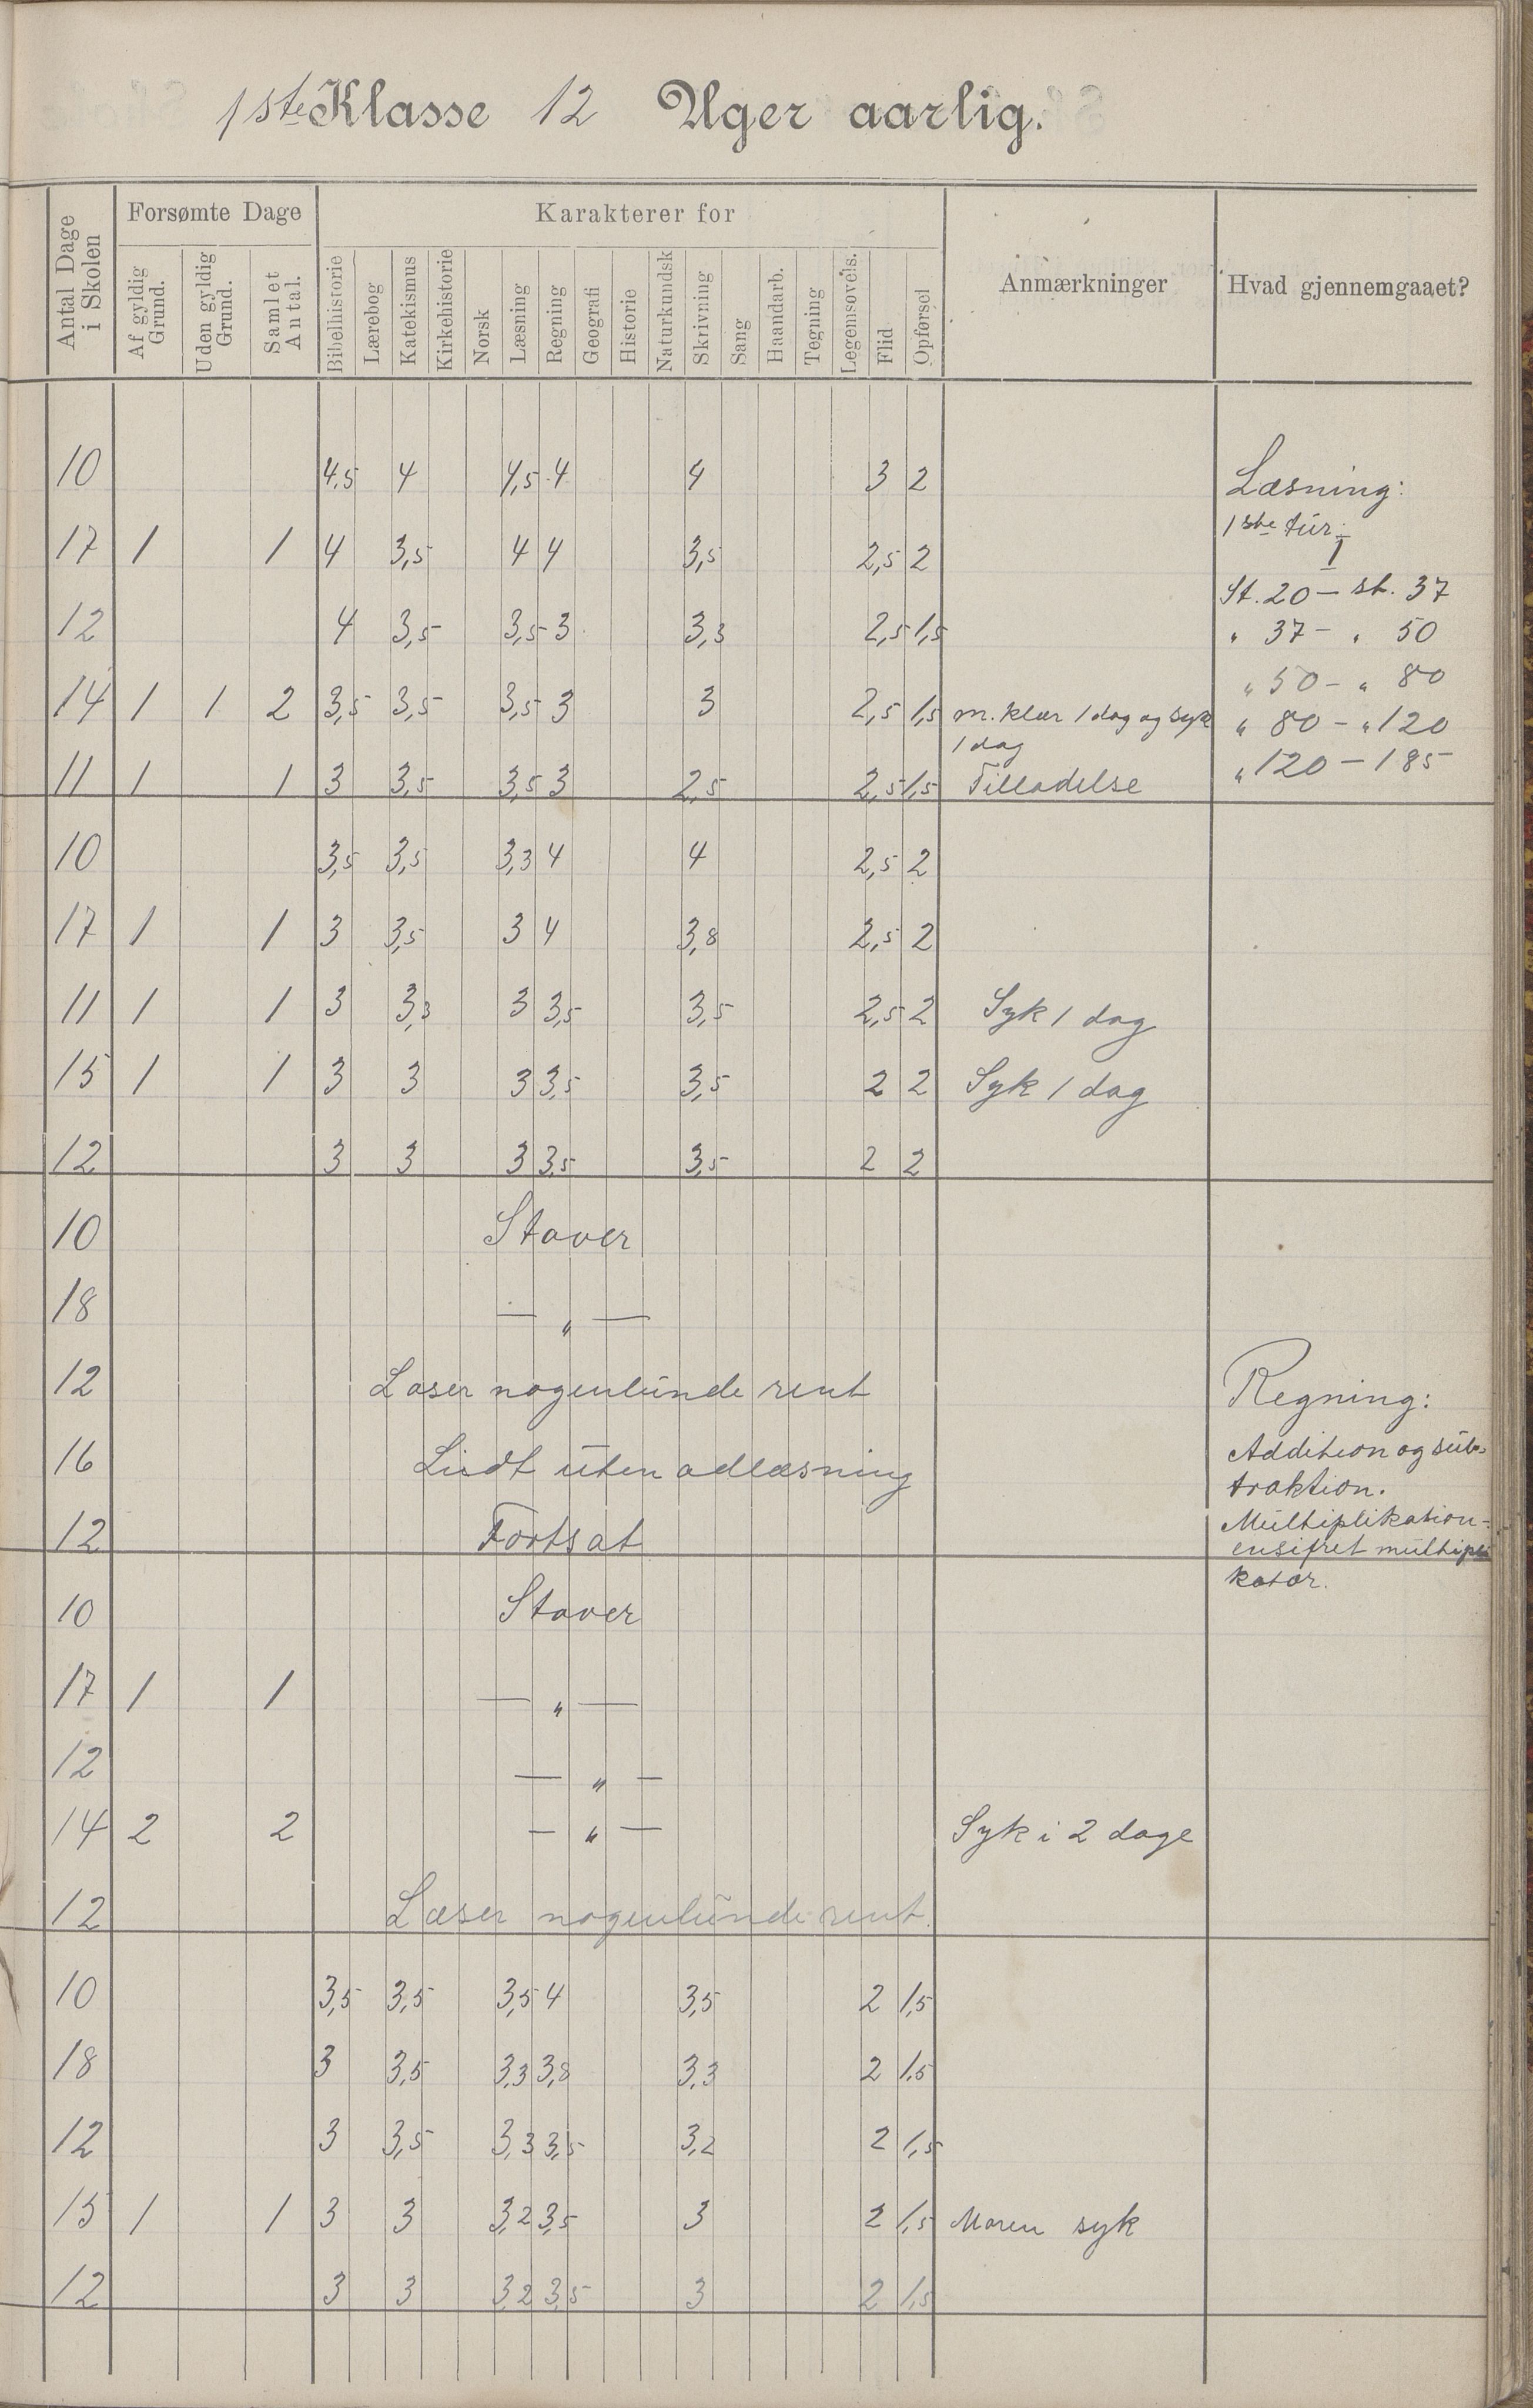 1ste Klasse 12 Uger aarlig.
Antal Dage i Skolen
Forsømte Dage
Karakterer for
Anmærkninger
Hvad gjennemgaaet?
Af gyldig Grund.
Uden gyldig Grund.
Samlet Antal.
Bibelhistorie
Lærebog
Katekismus
Kirkehistorie
Norsk
Læsning
Regning
Geografi
Historie
Naturkundsk
Skrivning
Sang
Haandarb.
Tegning
Legemsøvels.
Flid
Opførsel
10 4,5 4 4,5 4 4 3 2 Læsning:
1ste tur:
17 1 1 4 3,5 4 4 3,5 2,5 2 I
St. 20 – st. 37
12 4 3,5 3,5 3 3,3 2,5 1,5 " 37 – " 50
" 50 – " 80
14 1 1 2 3,5 3,5 3,5 3 3 2,5 1,5 m. klær 1 dag og syk " 80 – " 120
1 dag
11 1 1 3 3,5 3,5 3 2,5 2,5 1,5 Tilladelse " 120 – 185
10 3,5 3,5 3,3 4 4 2,5 2
17 1 1 3 3,5 3 4 3,8 2,5 2
11 1 1 3 3,3 3 3,5 3,5 2,5 2 Syk 1 dag
15 1 1 3 3 3 3,5 3,5 2 2 Syk 1 dag
12 3 3 3 3,5 3,5 2 2
10 Staver
18 — " —
12 Læser nogenlunde rent Regning:
16 Lidt uten adlæsning Addition og sub-
traktion.
12 Fortsat Multiplikation-
ensifret multipli
kator.
10 Staver
17 1 1 — " —
12 — " —
14 2 2 — " — Syk i 2 dage
12 Læser nogenlunde rent.
10 3,5 3,5 3,5 4 3,5 2 1,5
18 3 3,5 3,3 3,8 3,3 2 1,5
12 3 3,5 3,3 3,5 3,2 2 1,5
15 1 1 3 3 3,2 3,5 3 2 1,5 Moren syk
12 3 3 3,2 3,5 3 2 1,5